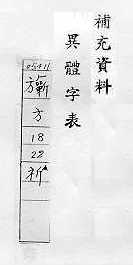 補充資料
異體字表
05411
方
18
22